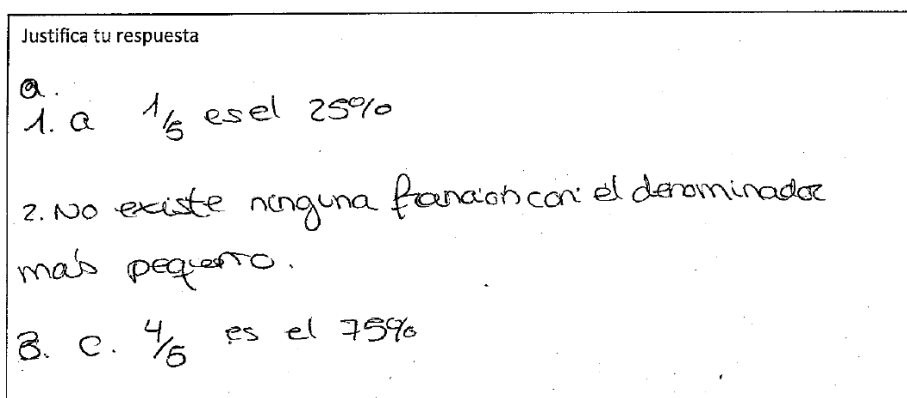 Justifica tu respuesta
a.
1. a 1/5 es el 25%
2. No existe ninguna francion con el denominador
más pequeño.
3. c. 4/5 es el 75%